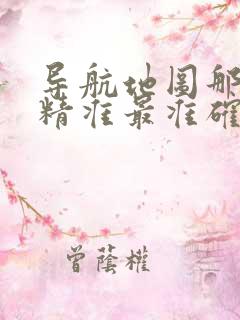 导航地图那
精准最准确
曾蔭權